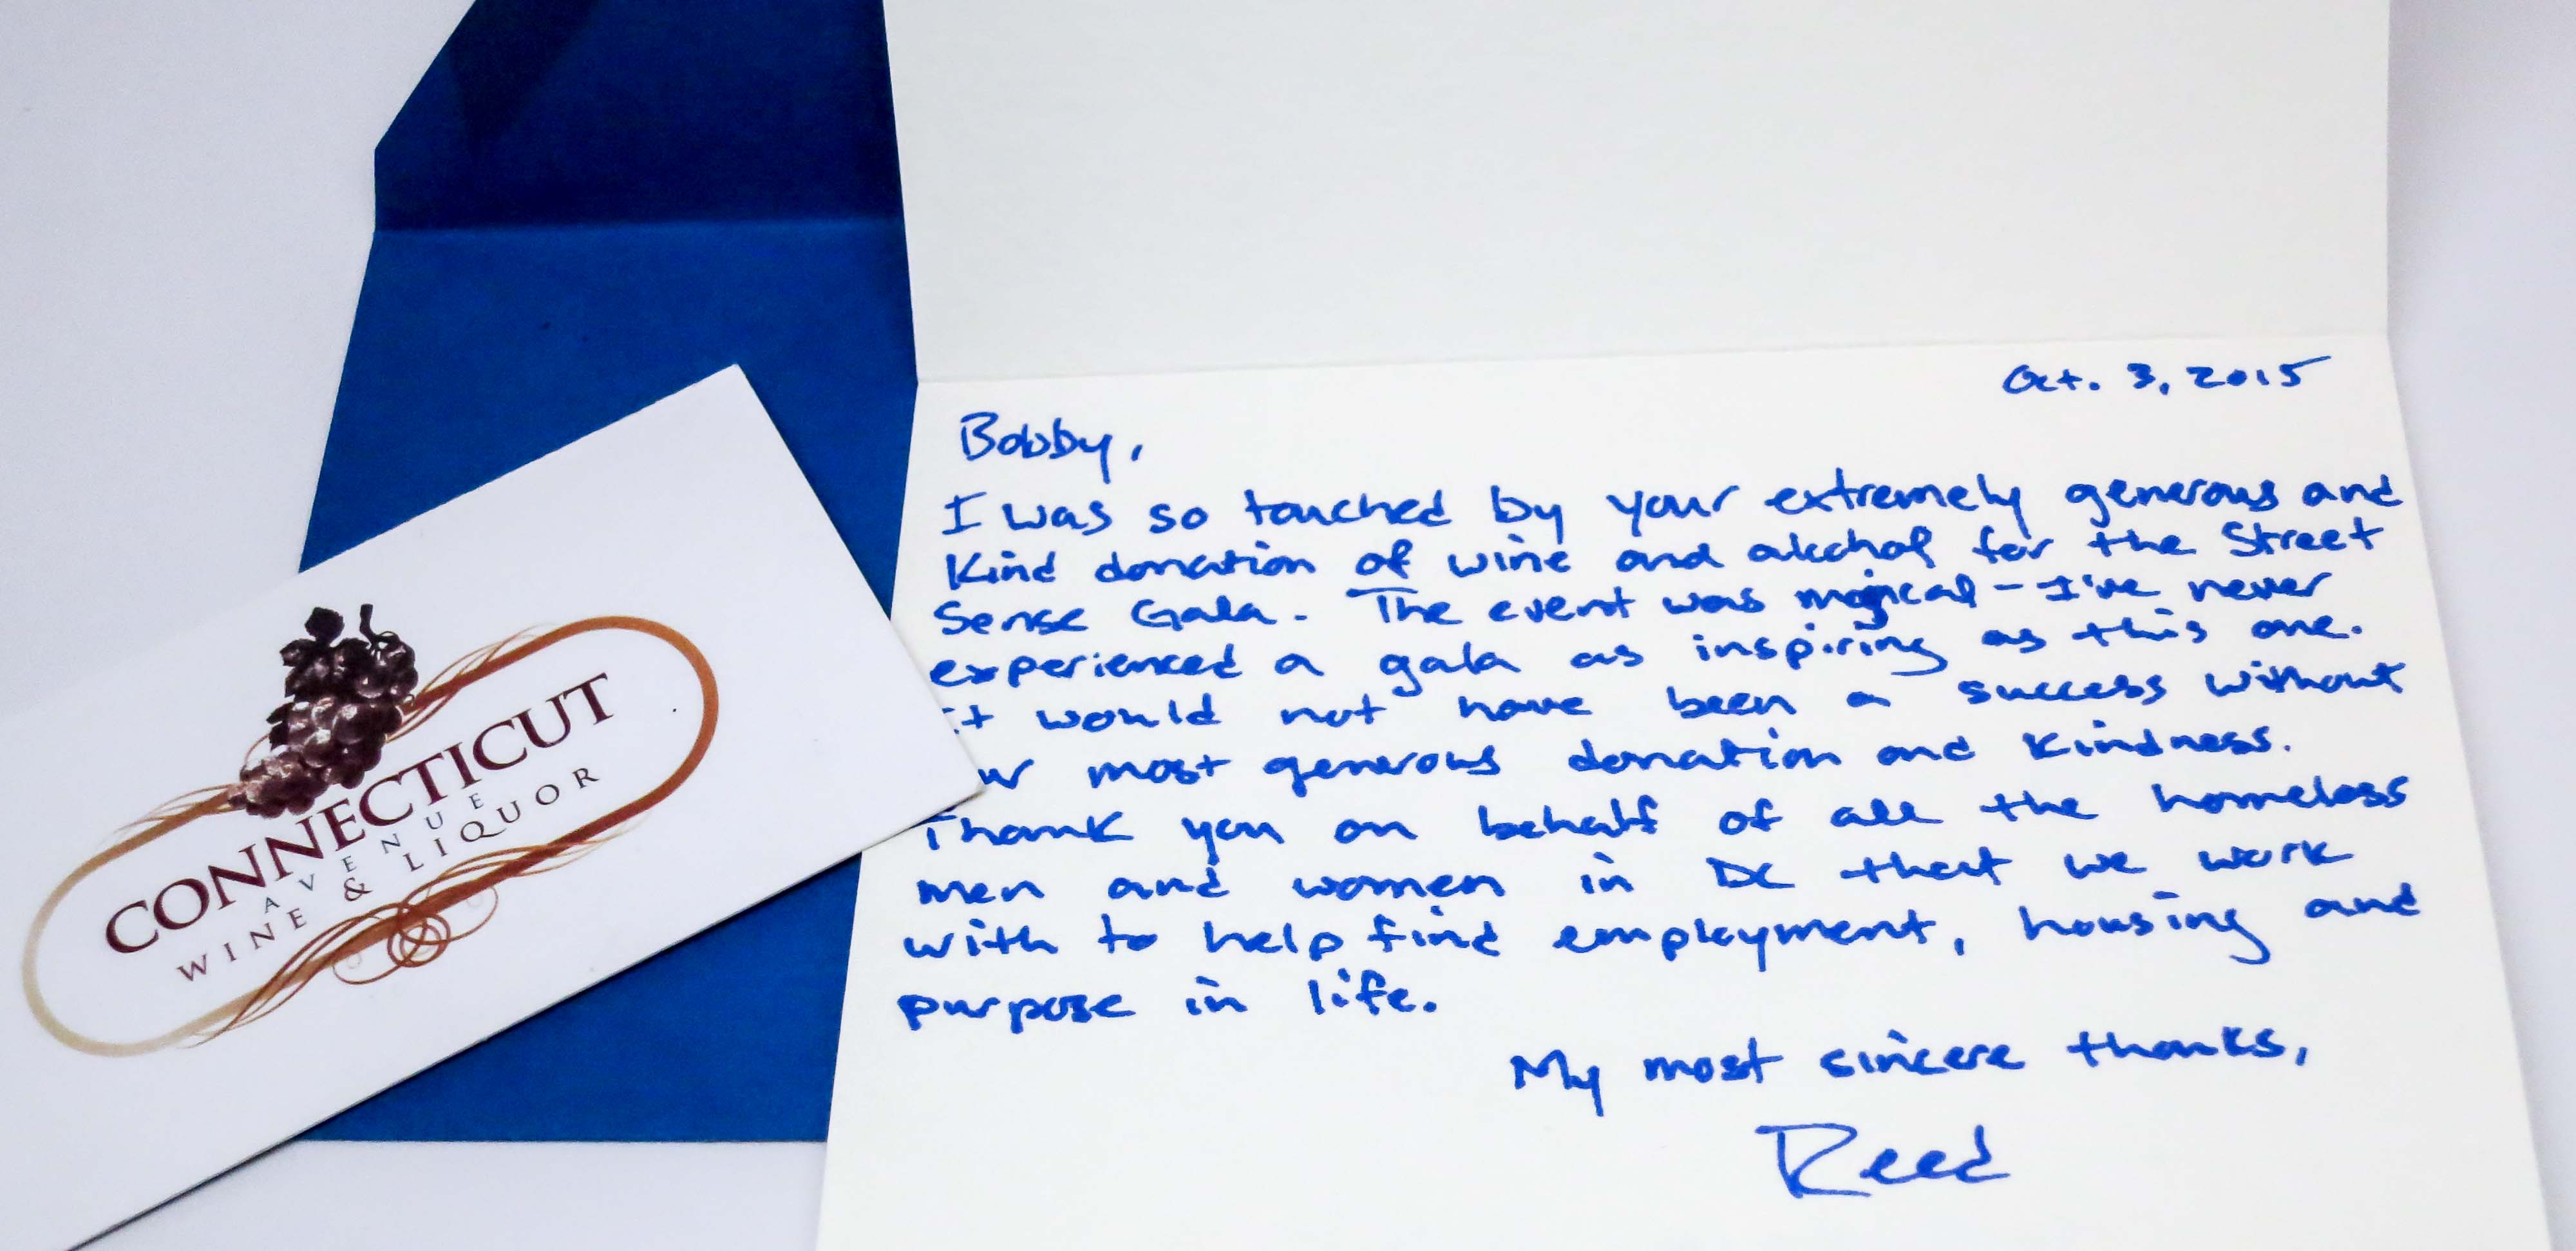 CONNECTICUT
AVENUE
WINE & LIQUOR
Oct. 3, 2015
Bobby,
I was so touched by your extremely generous and
kind donation of wine and alcohol for the Street
Sense Gala. The event was magical - I've never
experienced a gala as inspiring as this one.
It would not have been a success without
most generous donation and kindness.
Thank you on behalf of all the homeless
men and women in DC that we work
with to help find employment, housing and
purpose in life.
My most sincere thanks,
Reed